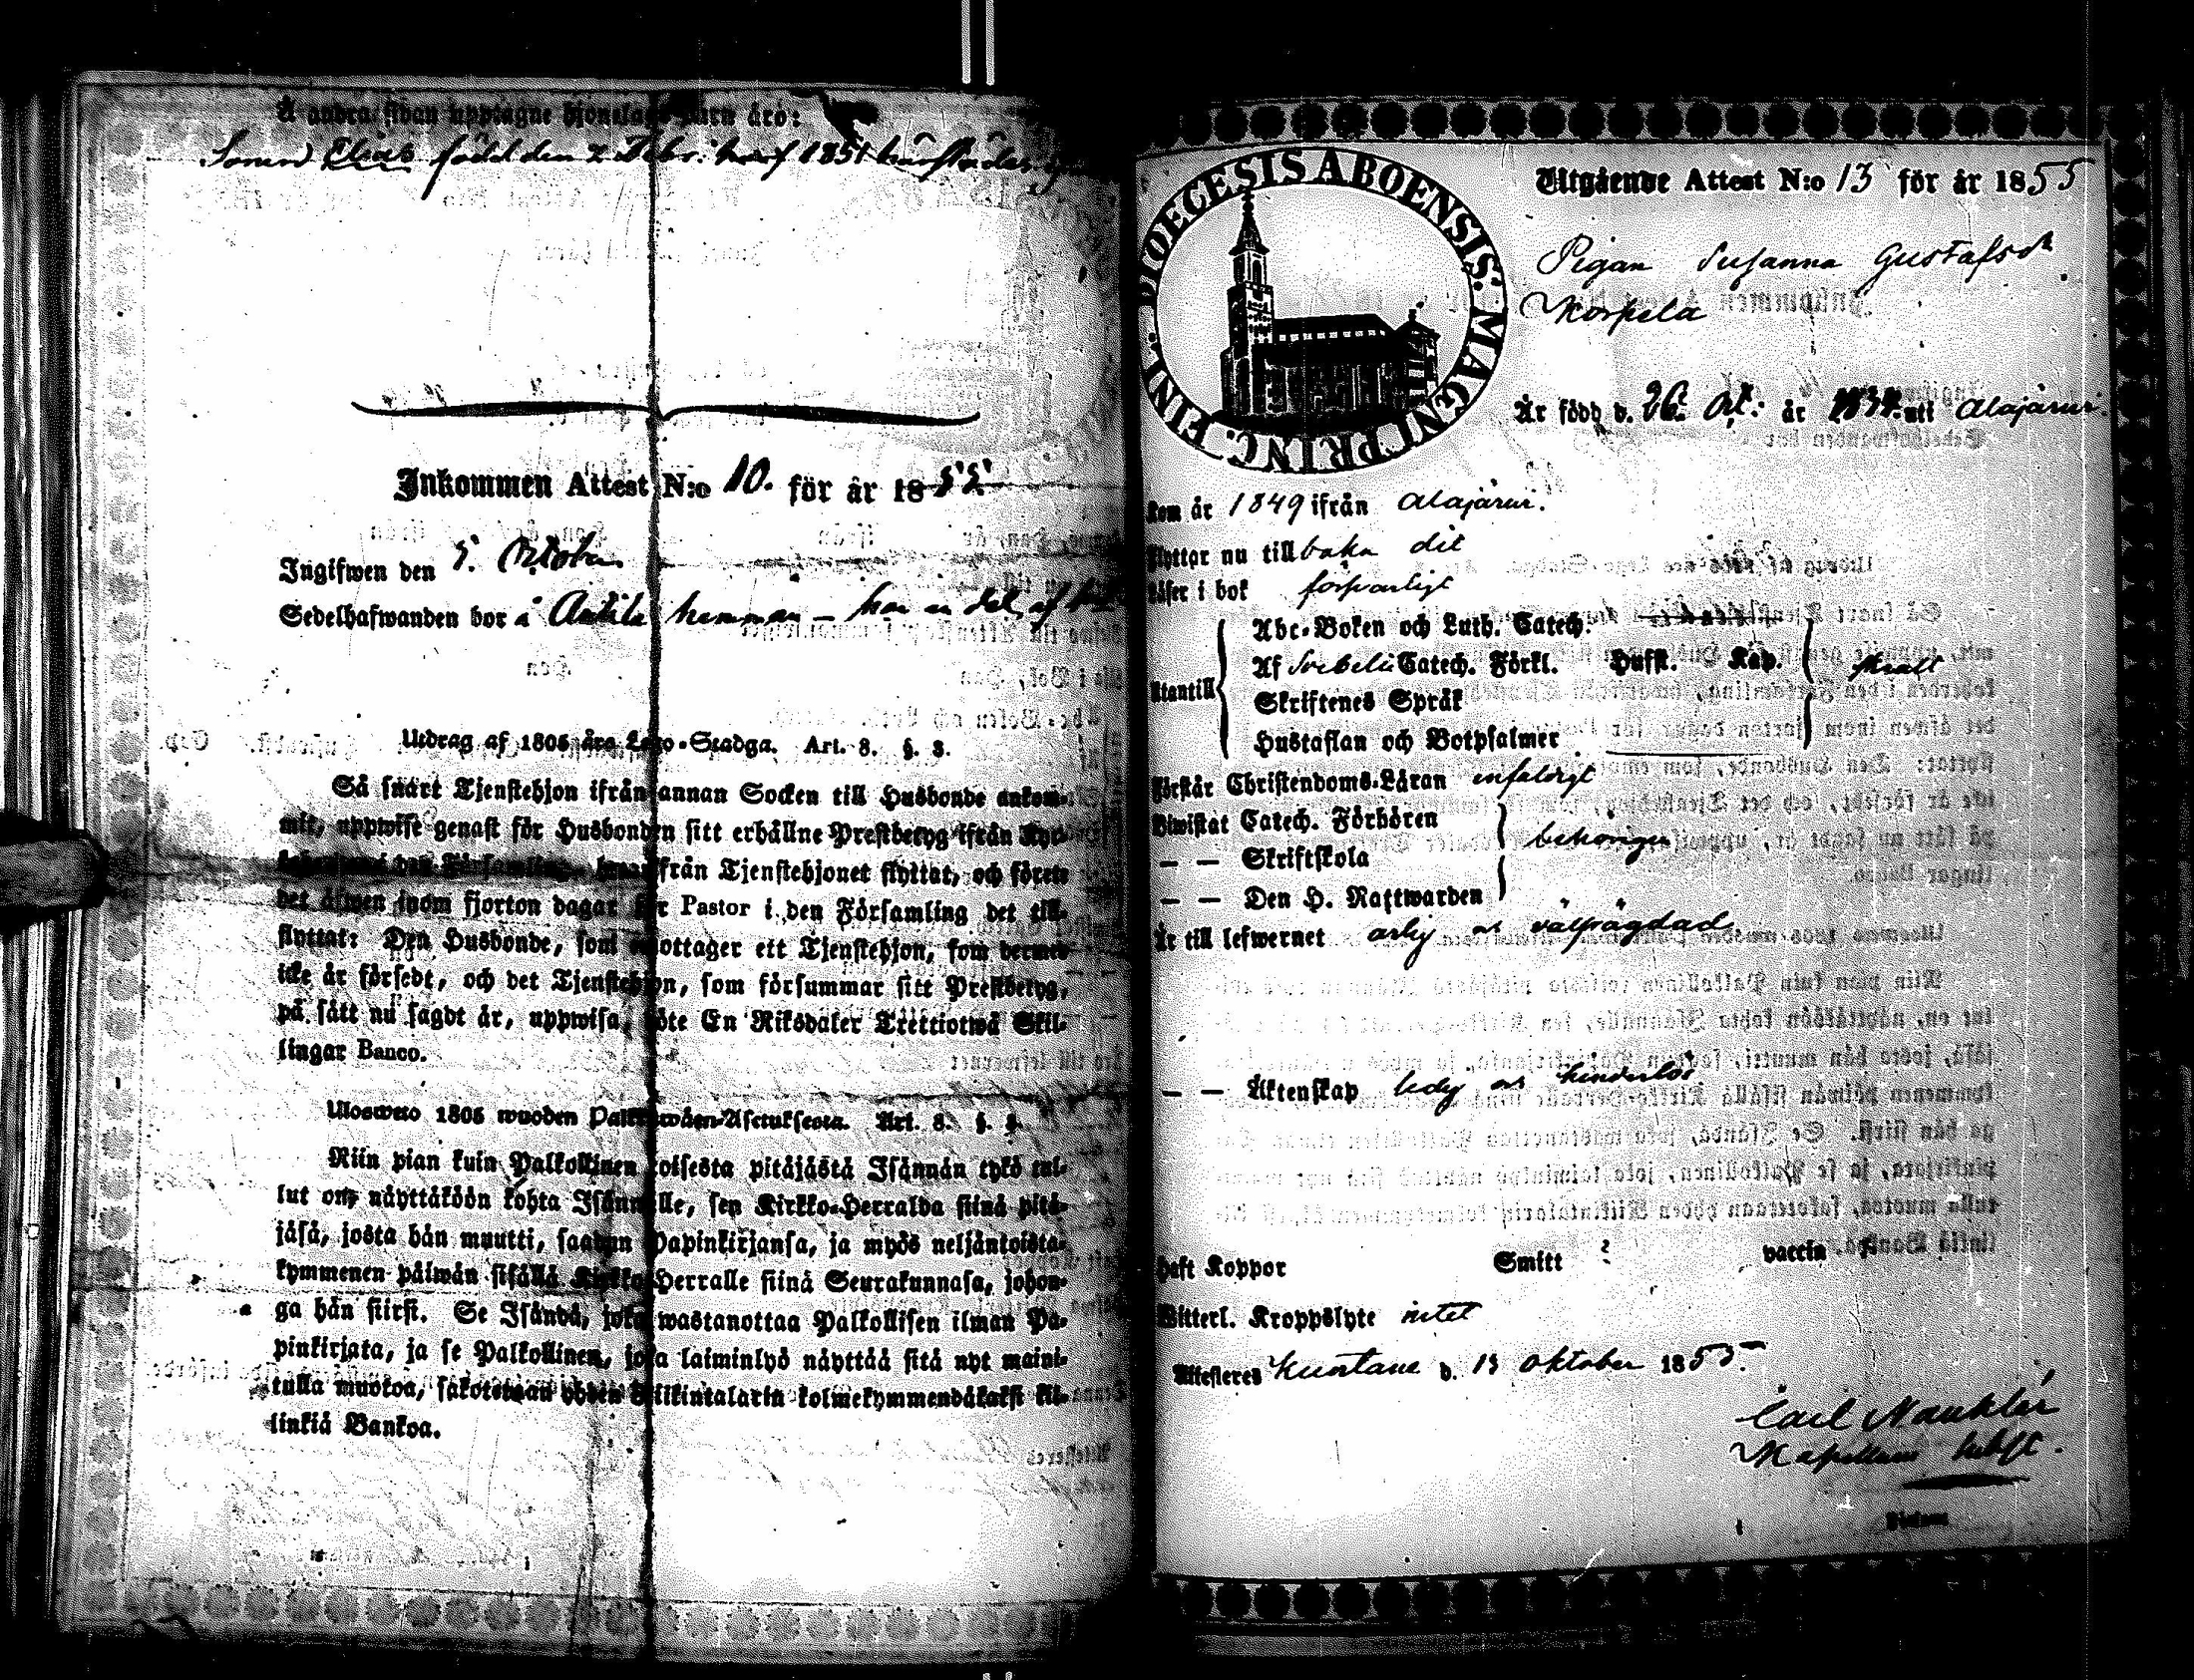 Å andra sidan upptagne hjonelags barn äro:
Sonen Elias född den 2 Febr. 1851
Inkommen Attest N:o 10. för år 1855
Ingifwen den 5. Octob.
Sedelhafwanden bor å Antila hemman — har en del af
Utdrag af 1805 års Lego-Stadga. Art. 8. §. 8.
Så snart Tjenstehjon ifrån annan Socken till Husbonde ankom-
mit, uppwise genast för Husbonden sitt erhållne Prestbetyg ifrån Kyr-
den Församling, hwarifrån Tjenstehjonet flyttat, och förete
det äfwen inom fjorton dagar för Pastor i den Församling det till-
flyttat: Den Husbonde, som emottager ett Tjenstehjon, som dermed
icke är försedt, och det Tjenstehjon, som försummar sitt Prestbetyg,
på sätt nu sagdt är, uppwisa, böte En Riksdaler Trettiotwå Skil-
lingar Banco.
Ulosweto 1805 wuoden Palkowäen-Asetuksesta. Art. 8. §.
Niin pian kuin Palkollinen toisesta pitäjästä Isännän tykö tul-
lut on, näyttäköön kohta Isännälle, sen Kirkko-Herralda siinä pitä-
jäsä, josta hän muutti, saadun Papinkirjansa, ja myös neljäntoista-
kymmenen päiwän sisällä Kirkko-Herralle siinä Seurakunnasa, johon-
ga hän siirsi. Se Isändä, joka wastanottaa Palkollisen ilman Pa-
pinkirjata, ja se Palkollinen, joka laiminlyö näyttää sitä nyt maini-
tulla muotoa, sakotetaan yhden Riikintalarin kolmekymmendäkaksi kil-
linkiä Bankoa.
DIOECESIS ABOENSIS. MAGNI PRINC. FINL.
Utgående Attest N:o 13 för år 1855
Pigan Susanna Gustafsdr
Korpela
Är född d. 26. Oct: år uti Alajärvi.
Kom år 1849 ifrån Alajärvi.
Flyttar nu till baka dit
Läser i bok försvarligt
Abc-Boken och Luth. Catech.
Af Svebelii Catech. Förkl. Hufst. Kap.
Utantill
Skriftenes Språk
Hustaflan och Botpsalmer
Förstår Christendoms-Läran enfaldigt
Biwistat Catech. Förhören
— — Skriftskola behörigen
— — Den H. Nattwarden
Är till lefwernet ärlig och välfrägdad
— — Äktenskap ledig och hinderlös
Haft Koppor Smitt ? vaccin
Witterl. Kroppslyte intet
Attesteres Kuortane d. 13 Oktober 1855.
Carl Nauklér
Kapellans